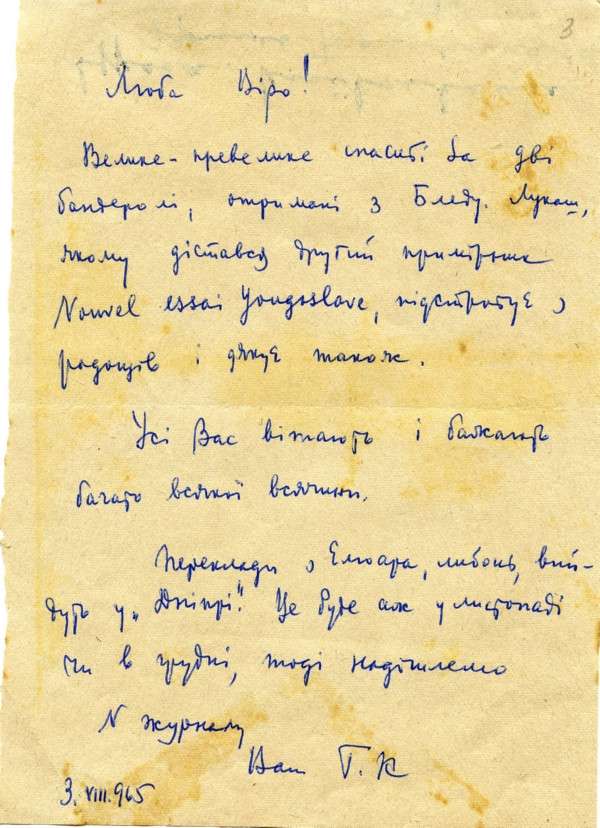 3
Люба Віро!
Велике-превелике спасибі за дві
бандеролі, отримані з Бледу. Лукаш,
якому дістався другий примірник
Nouvel essai Yougoslave, підстрибує з
радощів і дякує також.
Усі Вас вітають і бажають
багато всякої всячини.
Переклади з Елюара, либонь, вий-
дуть у „Дніпрі". Це буде аж у листопаді
чи в грудні, тоді надішлемо
N журналу
Ваш Г. К
3. VIII. 965